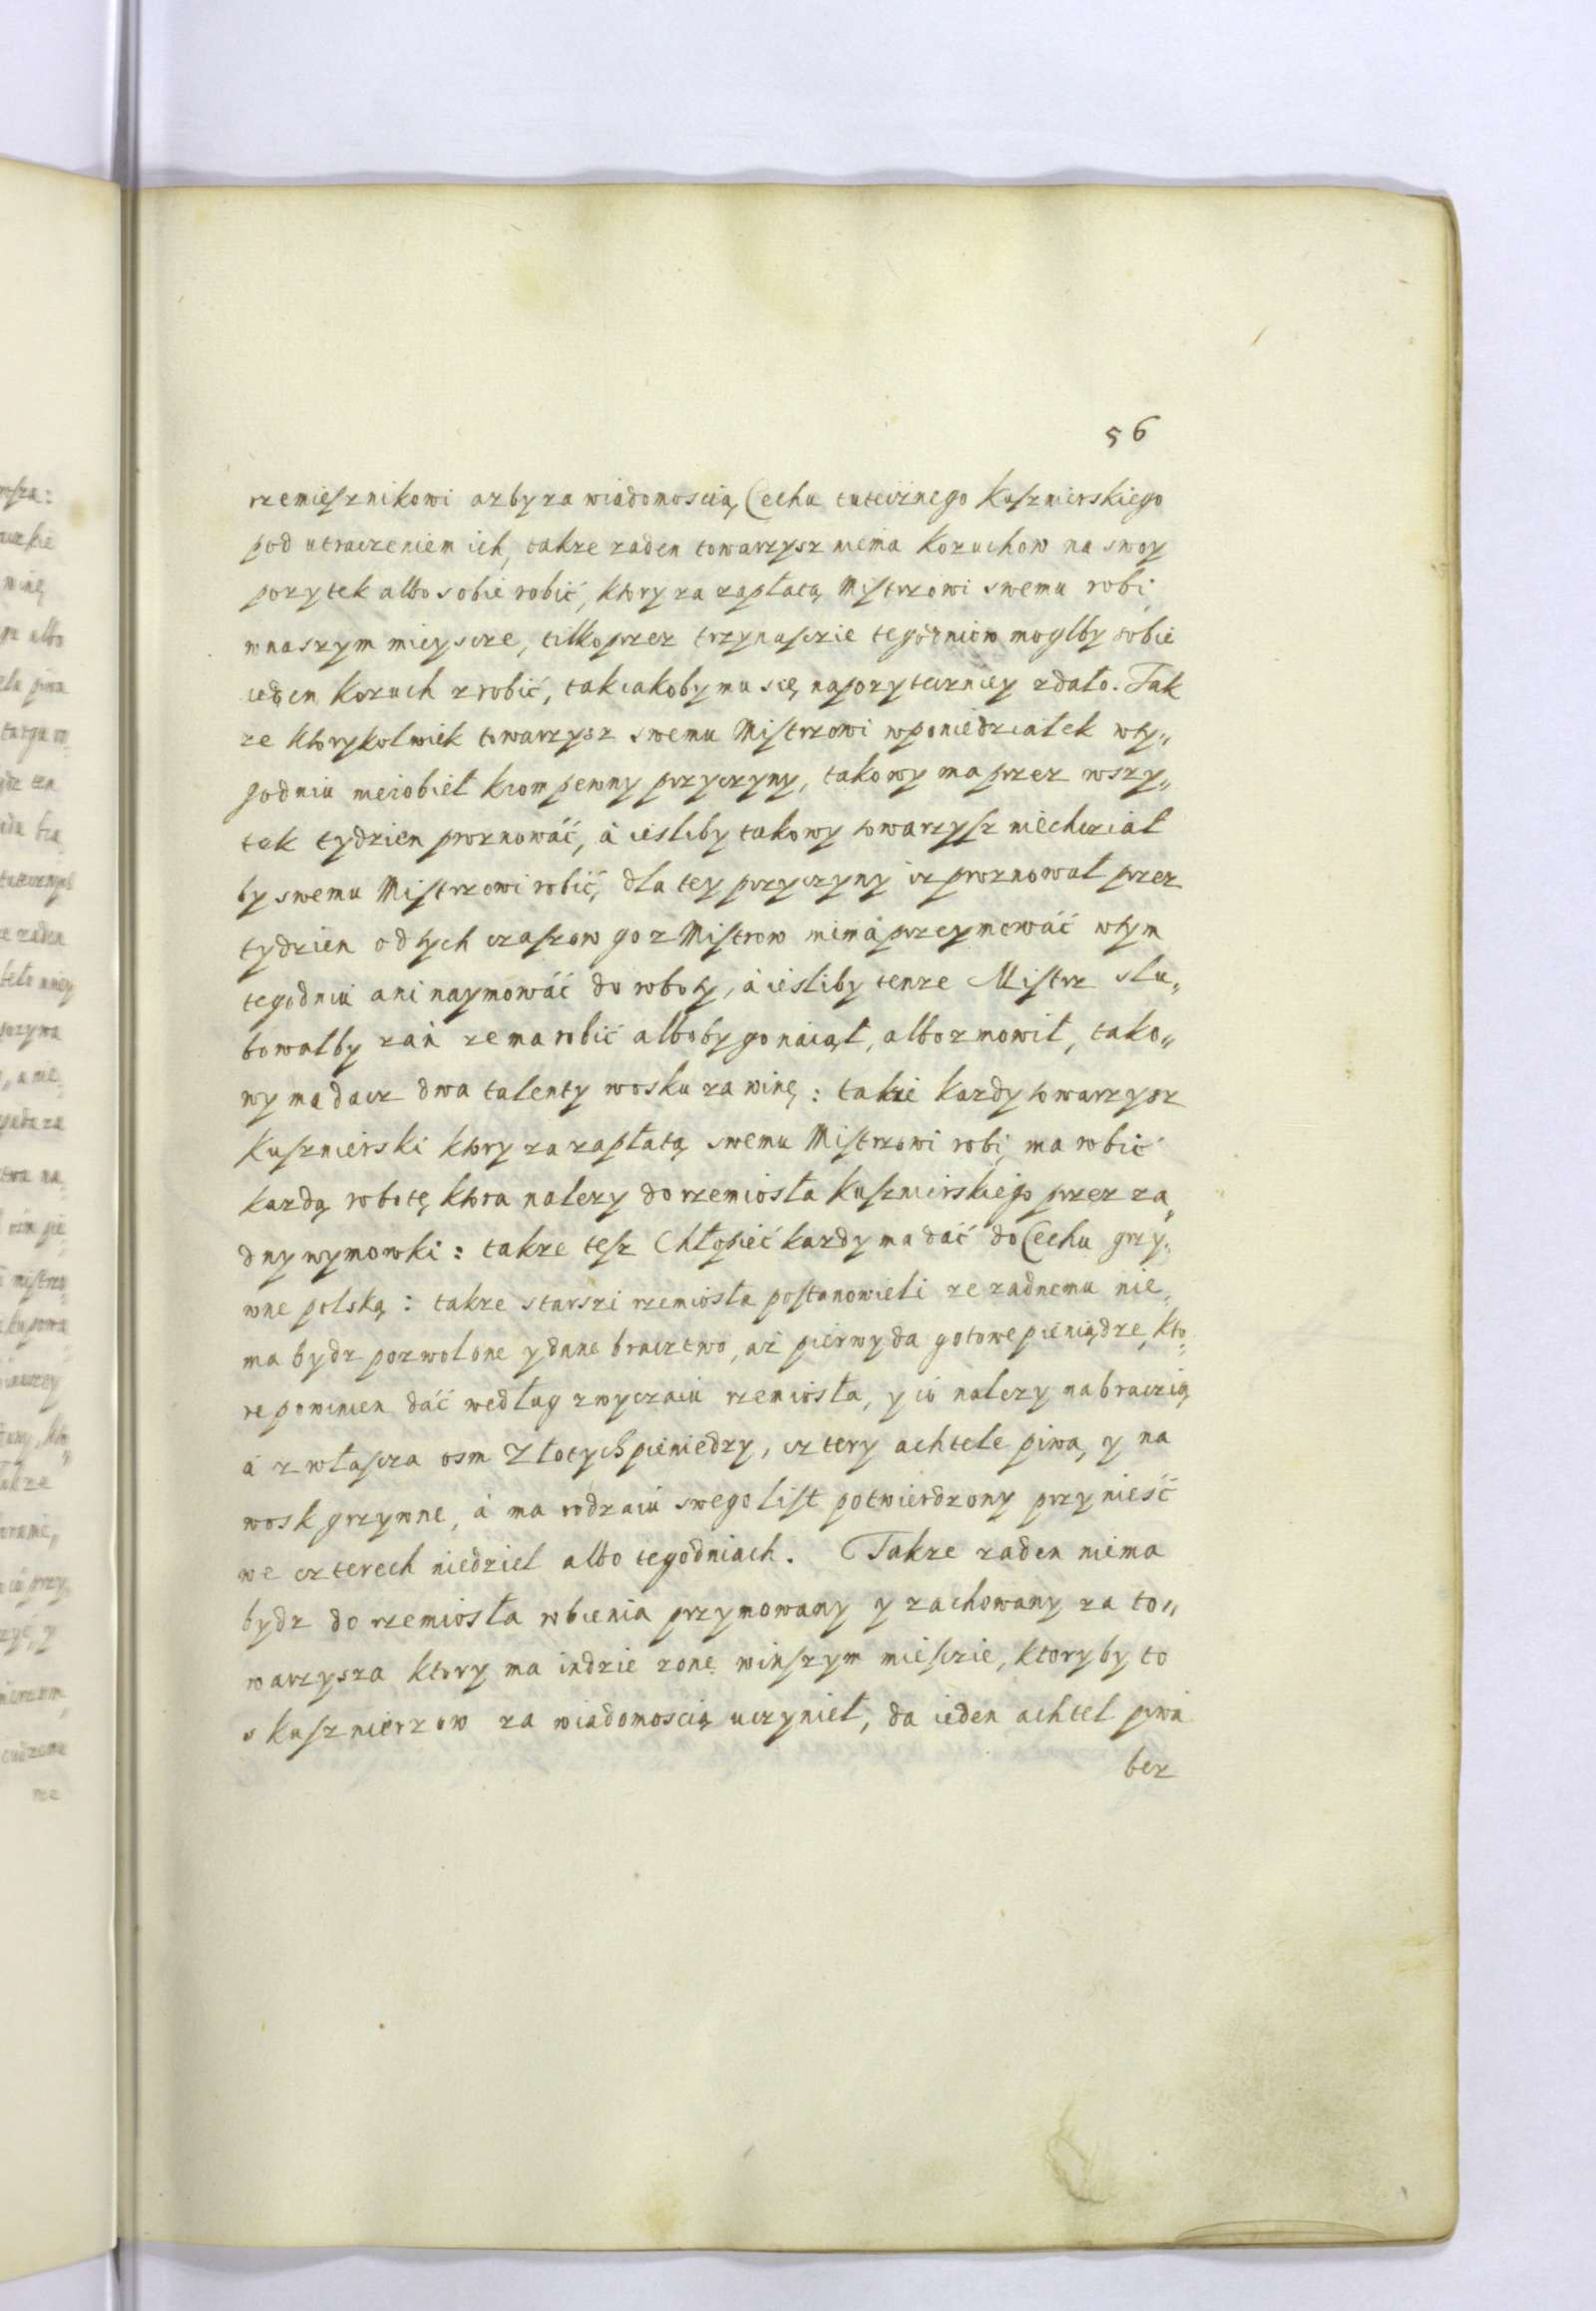 56
rzemieſznikowi azby za wiadomoscią Cechu tuteicznego Kuſznierskiego
pod utraczeniem ich, takze zaden towarzysz niema Kozuchow na swoy
pozytek albo sobie robić, ktory za zapłatą Miſtrzowi swemu robi
wnaszym mieyscze, tilko przez trzynaſczie tegodniow moglby sobie
ieden Kozuch zrobić, tak iakoby mu się napozyteczniey zdało. Tak
ze ktorykolwiek towarzysz swemu Miſtrzowi wponiedzialek wty„
godniu nierobieł krom pewny przyczyny, takowy ma przez wszy„
tek tydzien proznowáć, á iesliby takowy towarzyſz niechcział
by swemu Miſtrzowi robić, dla tey przyczyny iz proznowal przez
tydzien od tych czaſzow go z Miſtrow nimá przeymowáć wtym
tegodniu ani naymowáć do roboty, á iesliby tenze Miſtrz slu„
bowałby zań ze ma robić alboby go naiął, albo zmowił, tako„
wy ma dacz dwa talenty wosku za winę : takze kazdy towarzysz
Kuſznierski ktory za zapłatą swemu Miſtrzowi robi, ma robić
kazdą robotę ktora nalezy do rzemiosła kuſznierskiego przez za„
dny wymowki : takze teſz Chłopieć kazdy ma dać do Cechu grzy„
wne polską : takze starszi rzemiosła poſtanowieli ze zadnemu nie„
ma bydz pozwolone y dane bracztwo, aż pierwy da gotowe pieniądze, kto„
re powinien dáć według zwyczaiu rzemiosła, y ió nalezy na braczią
á zwłaſcza osm Złotych pieniedzy, cztery achtele piwa, y na
wosk grzywne, á ma rodzaiu swego liſt potwierdzony przynieść
we czterech niedziel albo tegodniach. Takze zaden nima
bydz do rzemiosła robienia przymowany y zachowany za to„
warzysza ktory ma indzie zonę winſzym mieſczie, ktory by to
s kuſznierzow za wiadomoscią uczynieł, da ieden achtel piwa
bez